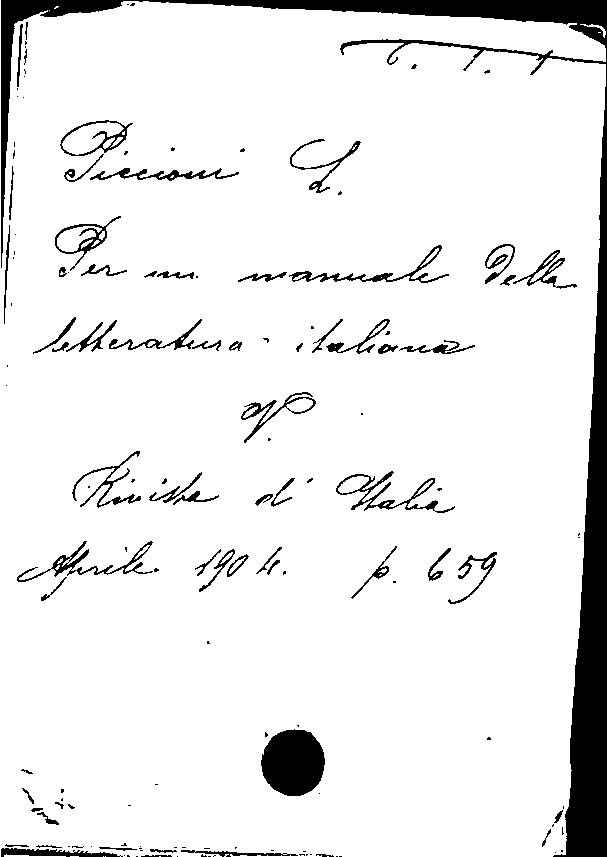 6. 1. 1
Piccioni L.
Per un manuale della
letteratura italiana
V.
Rivista d' Italia
Aprile 1904. p. 659